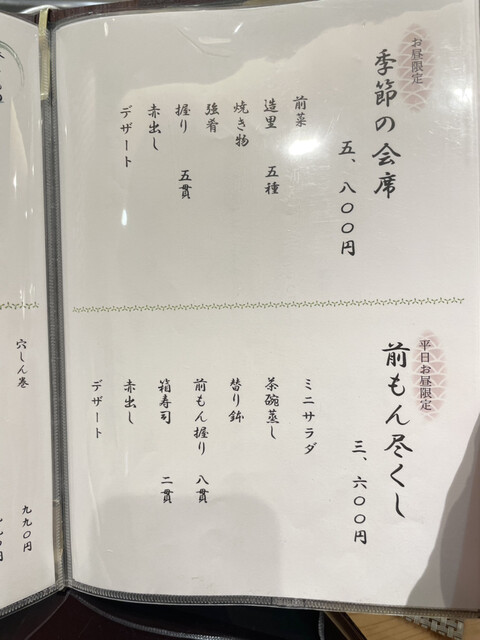 お昼限定
季節の会席
五、八〇〇円
前菜
造里 五種
焼き物
強肴
握り 五貫
赤出し
デザート
平日お昼限定
前もん尽くし
三、六〇〇円
ミニサラダ
茶碗蒸し
替り鉢
前もん握り 八貫
箱寿司 二貫
赤出し
デザート
穴しん巻
九九〇円